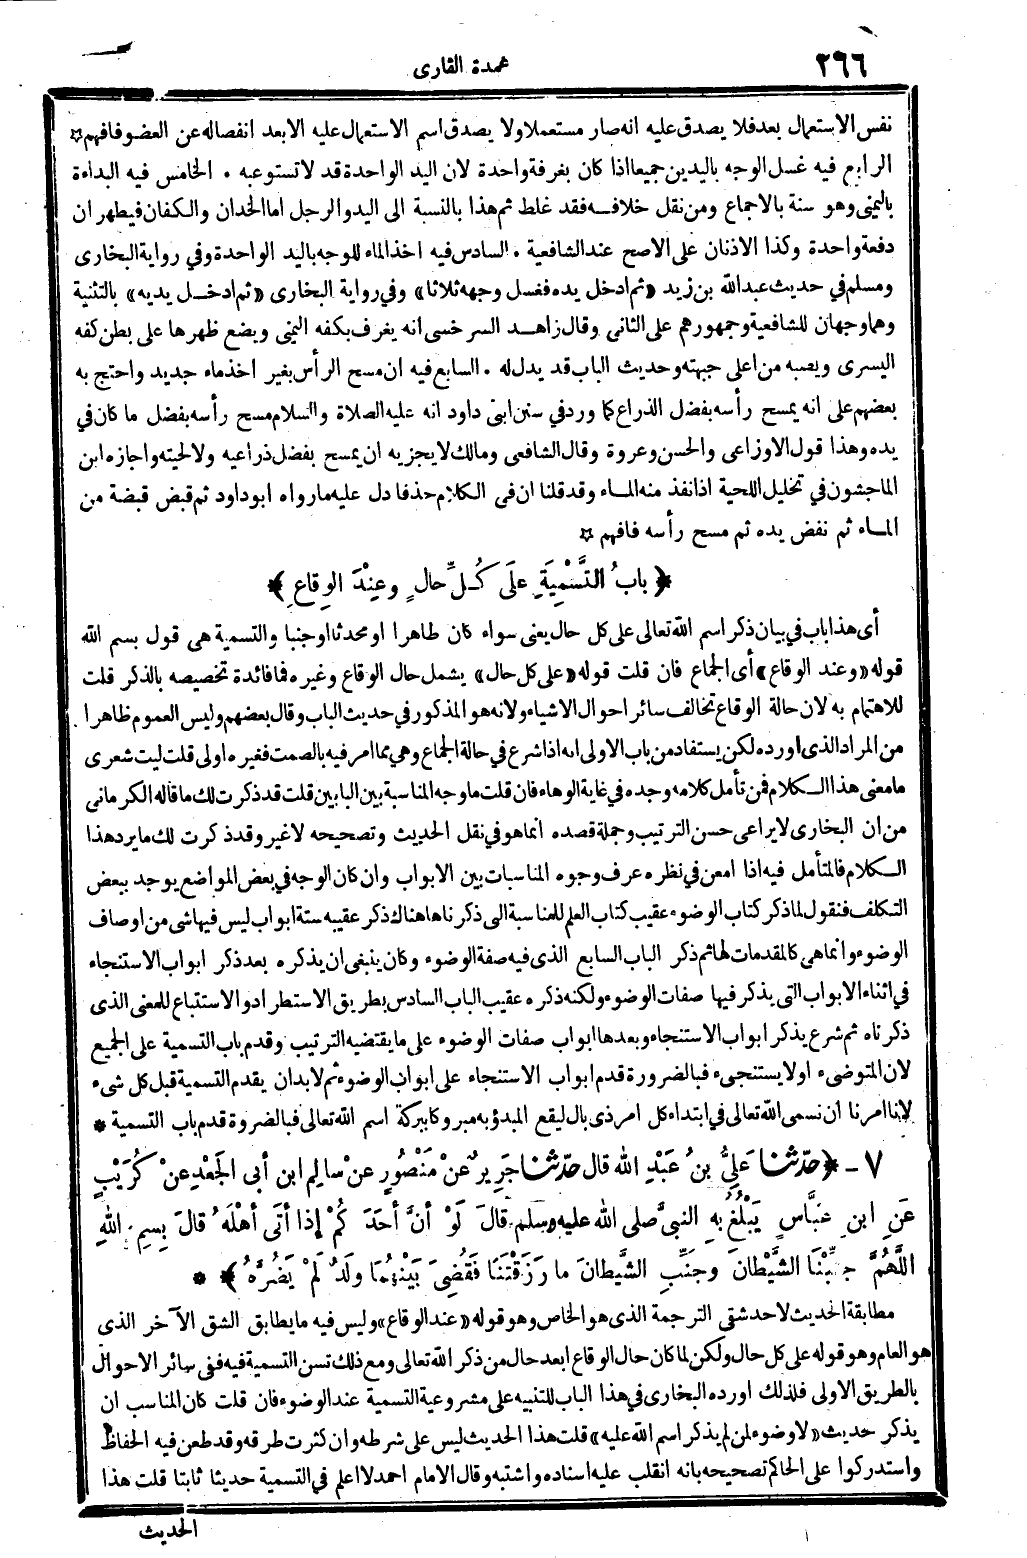 ٢٦٦
عمدة القارى
نفس الاستعمال بعد فلا يصدق عليه انه صار مستعملا ولا يصدق اسم الاستعمال عليه الا بعد انفصاله عن العضو فافهم ✩
الرابع فيه غسل الوجه باليدين جميعا اذا كان بغرفة واحدة لان اليد الواحدة قد لا تستوعبه . الخامس فيه البداءة
باليمنى وهو سنة بالاجماع ومن نقل خلافه فقد غلط ثم هذا بالنسبة الى اليد والرجل اما الخدان والكفان فيطهران
دفعة واحدة وكذا الاذنان على الاصح عند الشافعية . السادس فيه اخذ الماء للوجه باليد الواحدة وفي رواية البخارى
ومسلم في حديث عبد الله بن زيد «ثم ادخل يده فغسل وجهه ثلاثا» وفي رواية البخارى «ثم ادخل يديه» بالتثنية
وهما وجهان للشافعية وجمهورهم على الثانى وقال زاهد السرخسى انه يغرف بكفه اليمنى ويضع ظهرها على بطن كفه
اليسرى ويصبه من اعلى جبهته وحديث الباب قد يدل له . السابع فيه ان مسح الرأس بغير اخذ ماء جديد واحتج به
بعضهم على انه يمسح رأسه بفضل الذراع كما ورد في سنن ابى داود انه عليه الصلاة والسلام مسح رأسه بفضل ما كان في
يده وهذا قول الاوزاعى والحسن وعروة وقال الشافعى ومالك لا يجزيه ان يمسح بفضل ذراعيه ولا لحيته واجازه ابن
الماجشون في تخليل اللحية اذا نفذ منه الماء وقد قلنا ان فى الكلام حذفا دل عليه ما رواه ابو داود ثم قبض قبضة من
الماء ثم نفض يده ثم مسح رأسه فافهم ✩
﴿ بابُ التَّسْمِيَةِ علَى كُلِّ حالٍ وعِنْدَ الوِقاعِ ﴾
أى هذا باب في بيان ذكر اسم الله تعالى على كل حال يعنى سواء كان طاهرا او محدثا او جنبا والتسمية هى قول بسم الله
قوله «وعند الوقاع» أى الجماع فان قلت قوله «على كل حال» يشمل حال الوقاع وغيره فما فائدة تخصيصه بالذكر قلت
للاهتمام به لان حالة الوقاع تخالف سائر احوال الاشياء ولانه هو المذكور في حديث الباب وقال بعضهم وليس العموم ظاهرا
من المراد الذى اورده لكن يستفاد من باب الاولى انه اذا شرع في حالة الجماع وهي مما امر فيه بالصمت فغيره اولى قلت ليت شعرى
ما معنى هذا الكلام فمن تأمل كلامه وجده في غاية الوهاء فان قلت ما وجه المناسبة بين البابين قلت قد ذكرت لك ما قاله الكرمانى
من ان البخارى لا يراعى حسن الترتيب وجملة قصده انما هو في نقل الحديث وتصحيحه لا غير وقد ذكرت لك ما يرد هذا
الكلام فالمتأمل فيه اذا امعن في نظره عرف وجوه المناسبات بين الابواب وان كان الوجه في بعض المواضع يوجد ببعض
التكلف فنقول لما ذكر كتاب الوضوء عقيب كتاب العلم للمناسبة التى ذكرناها هناك ذكر عقيبه ستة ابواب ليس فيها شى من اوصاف
الوضوء وانما هى كالمقدمات لها ثم ذكر الباب السابع الذى فيه صفة الوضوء وكان ينبغى ان يذكره بعد ذكر ابواب الاستنجاء
في اثناء الابواب التى يذكر فيها صفات الوضوء ولكنه ذكره عقيب الباب السادس بطريق الاستطراد والاستتباع للمعنى الذى
ذكرناه ثم شرع يذكر ابواب الاستنجاء وبعدها ابواب صفات الوضوء على ما يقتضيه الترتيب وقدم باب التسمية على الجميع
لان المتوضىء اولا يستنجىء فبالضرورة قدم ابواب الاستنجاء على ابواب الوضوء ثم لا بد ان يقدم التسمية قبل كل شىء
لاننا امرنا ان نسمى الله تعالى في ابتداء كل امر ذى بال ليقع المبدؤ به مبروكا ببركة اسم الله تعالى فبالضروة قدم باب التسمية *
٧ - ﴿ حدَّثنا عَلِيُّ بنُ عَبْدِ اللهِ قال حدَّثنا جَرِيرٌ عنْ مَنْصُورٍ عنْ سالِمِ ابن أبى الجَعْدِ عنْ كُرَيْبٍ
عَنِ ابنِ عَبَّاسٍ يَبْلُغُ بِهِ النبيَّ صلى الله عليه وسلم قالَ لَوْ أنَّ أحَدَكُمْ إذا أتَى أهْلَهُ قالَ بِسمِ اللهِ
اللَّهُمَّ جَنِّبْنَا الشَّيْطَانَ وجَنِّبِ الشَّيطانَ ما رَزَقْتَنَا فَقُضِيَ بَيْنَهُما ولَدٌ لَمْ يَضُرَّهُ ﴾ *
مطابقة الحديث لاحد شقى الترجمة الذى هو الخاص وهو قوله «عند الوقاع» وليس فيه ما يطابق الشق الآخر الذى
هو العام وهو قوله على كل حال ولكن لما كان حال الوقاع ابعد حال من ذكر الله تعالى ومع ذلك تسن التسمية فيه ففى سائر الاحوال
بالطريق الاولى فلذلك اورده البخارى في هذا الباب للتنبيه على مشروعية التسمية عند الوضوء فان قلت كان المناسب ان
يذكر حديث «لا وضوء لمن لم يذكر اسم الله عليه» قلت هذا الحديث ليس على شرطه وان كثرت طرقه وقد طعن فيه الحفاظ
واستدركوا على الحاكم تصحيحه بانه انقلب عليه اسناده واشتبه وقال الامام احمد لا اعلم في التسمية حديثا ثابتا قلت هذا
الحديث